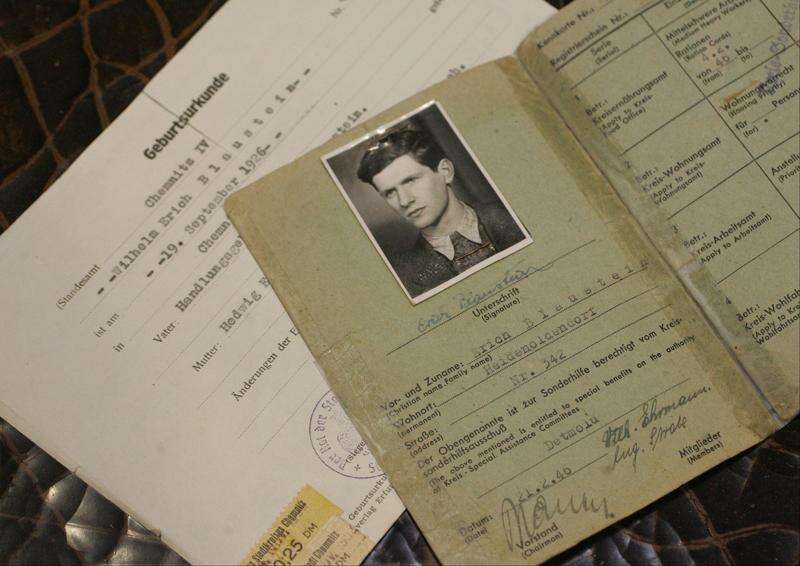 Geburtsurkunde
(Standesamt Chemnitz IV
--Wilhelm Erich Blaustein--
ist am --19. September 1926--
in Chemn
Vater: Handlungsge
Mutter: Hedwig
Änderungen der
Geburtsurku
0.25 DM
Unterschrift
(Signature)
Vor- und Zuname: Erich Blaustein
(Christian name-Family name)
Wohnort: Heidenoldendorf
(permanent)
Straße: Nr. 342
(address)
Der Obengenannte ist zur Sonderhilfe berechtigt vom Kreis-
sonderhilfsausschuß
(The above mentioned is entitled to special benefits on the authority
of Kreis - Special Assistance Committee)
Detmold
Mitglieder
(Members)
Datum: 21.2.46
(Date)
Vorstand
(Chairman)
Kennkarte Nr.:
Registrierschein Nr.:
Serie
(Serial)
Mittelschwere
(Medium Heavy Workers
Rationen
(Ration Cards)
von 46 bis
(from) (to)
1
Betr.:
Kreisernährungsamt
(Apply to Kreis-
Food Office)
Wohnungsvorrecht
(Housing Priority)
für Person
(for)
2
Betr.:
Kreis-Wohnungsamt
(Apply to Kreis-
Wohnungsamt)
3
Betr.:
Kreis-Arbeitsamt
(Apply to Arbeitsamt)
Anstellu
(Priorit
4
Betr.:
Kreis-Wohlfah
(Apply to K
Wohlfahrtsam